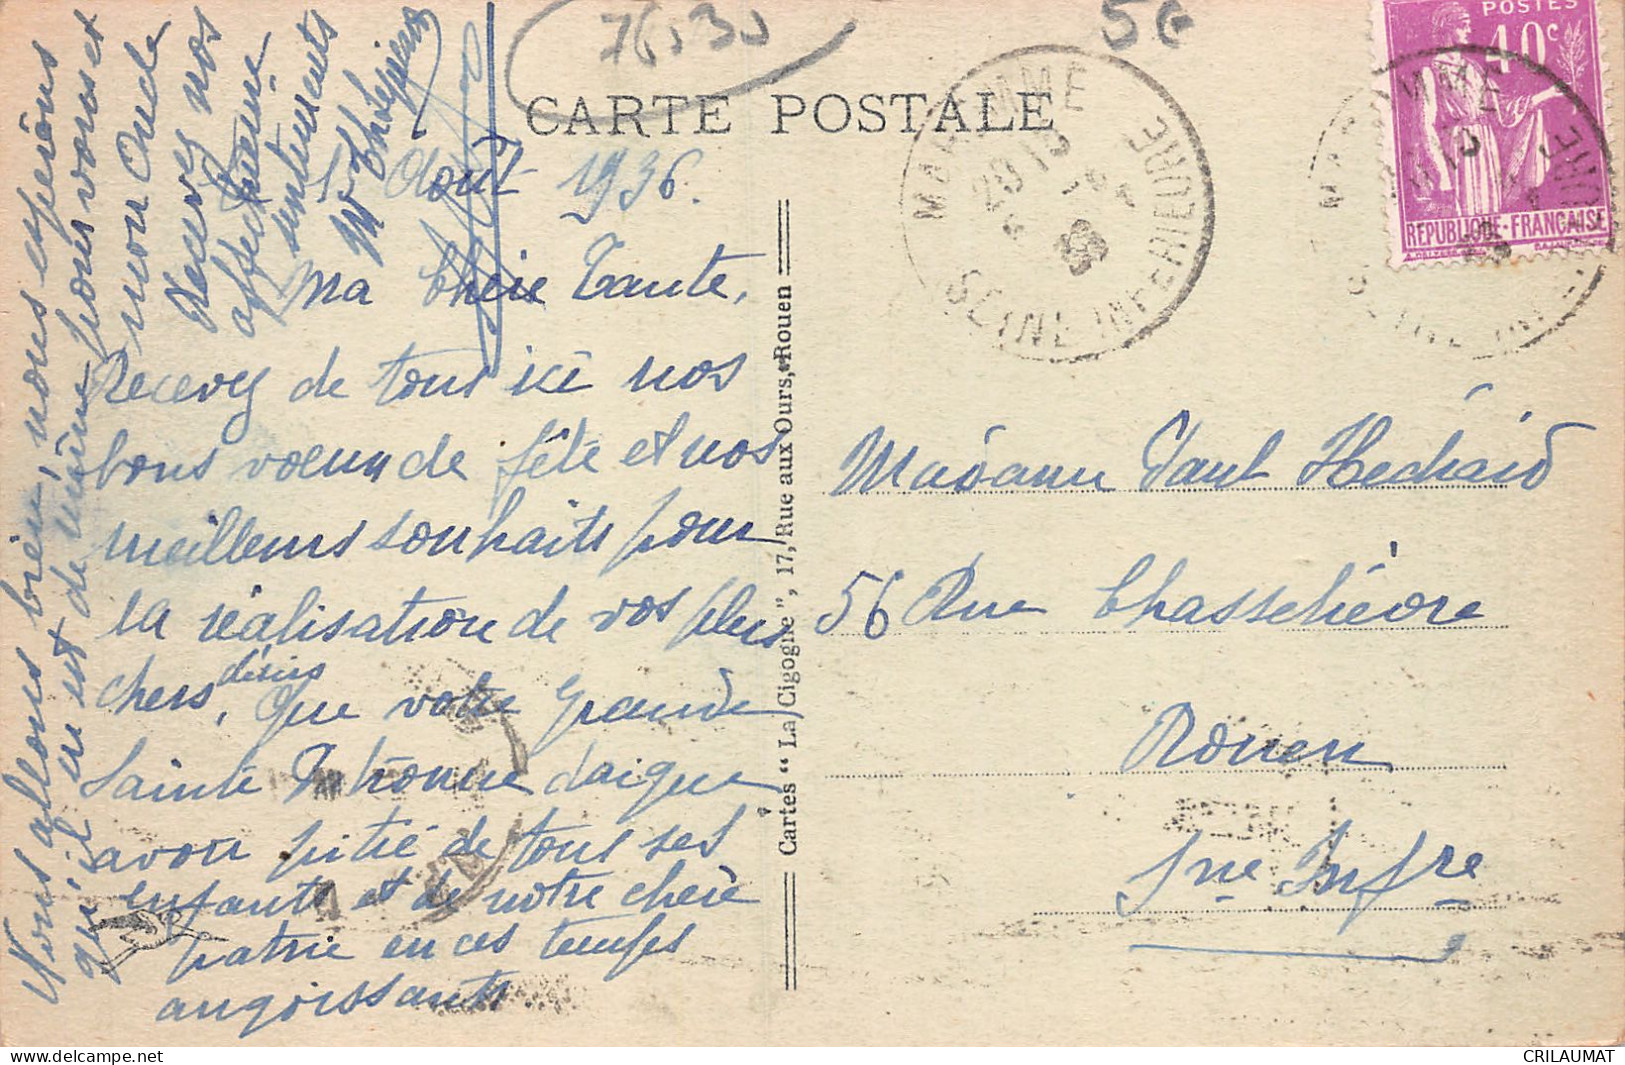 76,30
5€
CARTE POSTALE
POSTES
40c
REPUBLIQUE-FRANÇAISE
MAROMME
SEINE INFERIEURE
Août 1936.
Ma Chère Tante,
Recevez de tous ici nos
bons voeux de fête et nos
meilleurs souhaits pour
la réalisation de vos plus
chers désirs, que votre grande
Sainte daigne
avoir pitié de tous ses
enfants et de notre chère
patrie en ces temps
angoissants
Nous allons bien, nous espérons
qu'il en est de même pour vous et
mon Oncle
Recevez nos
affectueux
sentiments
Madame Paul Héchard
56 Rue Chasselièvre
Rouen
Sne Infre
Cartes "La Cigogne", 17, Rue aux Ours, Rouen
CRILAUMAT